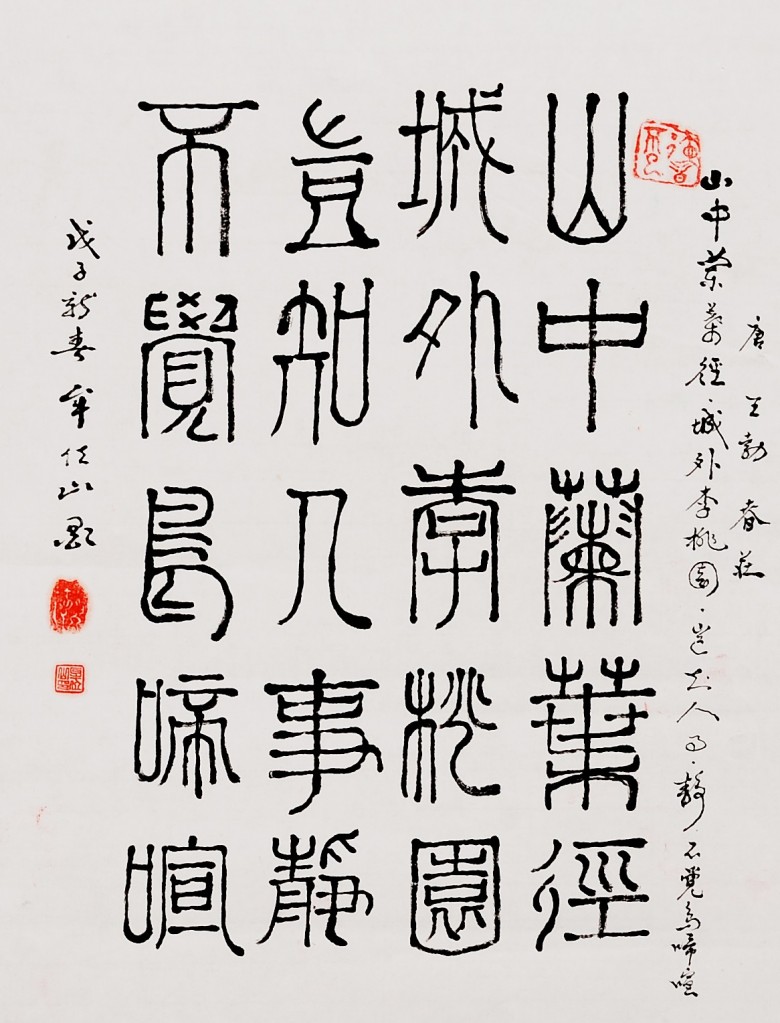 唐 王勃 春莊
山中蘭葉徑·城外李桃園·豈知人事·靜不覺鳥啼喧
山中蘭葉徑
城外李桃園
豈知人事靜
不覺鳥啼喧
戊子新春